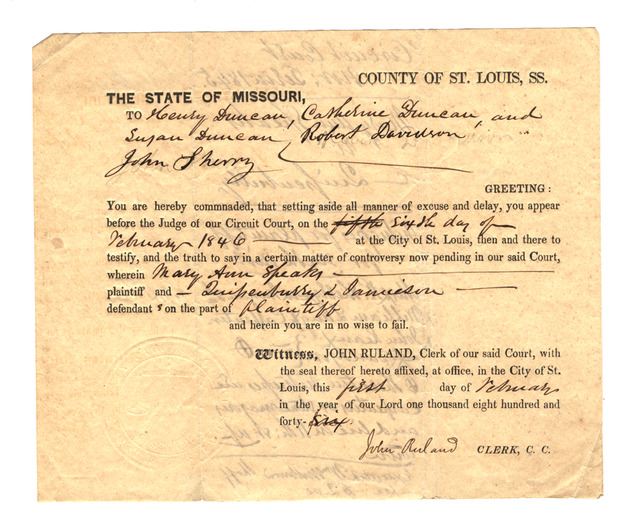 COUNTY OF ST. LOUIS, SS.
THE STATE OF MISSOURI,
TO Henry Duncan, Catherine Duncan, and
Susan Duncan, Robert Davidson,
John Sherry
GREETING:
You are hereby commnaded, that setting aside all manner of excuse and delay, you appear
before the Judge of our Circuit Court, on the fifth Sixth day of
February 1846 at the City of St. Louis, then and there to
testify, and the truth to say in a certain matter of controversy now pending in our said Court,
wherein Mary Ann Speaks
plaintiff and & Jamieson
defendant s on the part of plaintiff
and herein you are in no wise to fail.
Witness, JOHN RULAND, Clerk of our said Court, with
the seal thereof hereto affixed, at office, in the City of St.
Louis, this first day of February
in the year of our Lord one thousand eight hundred and
forty-six
John Ruland CLERK, C. C.